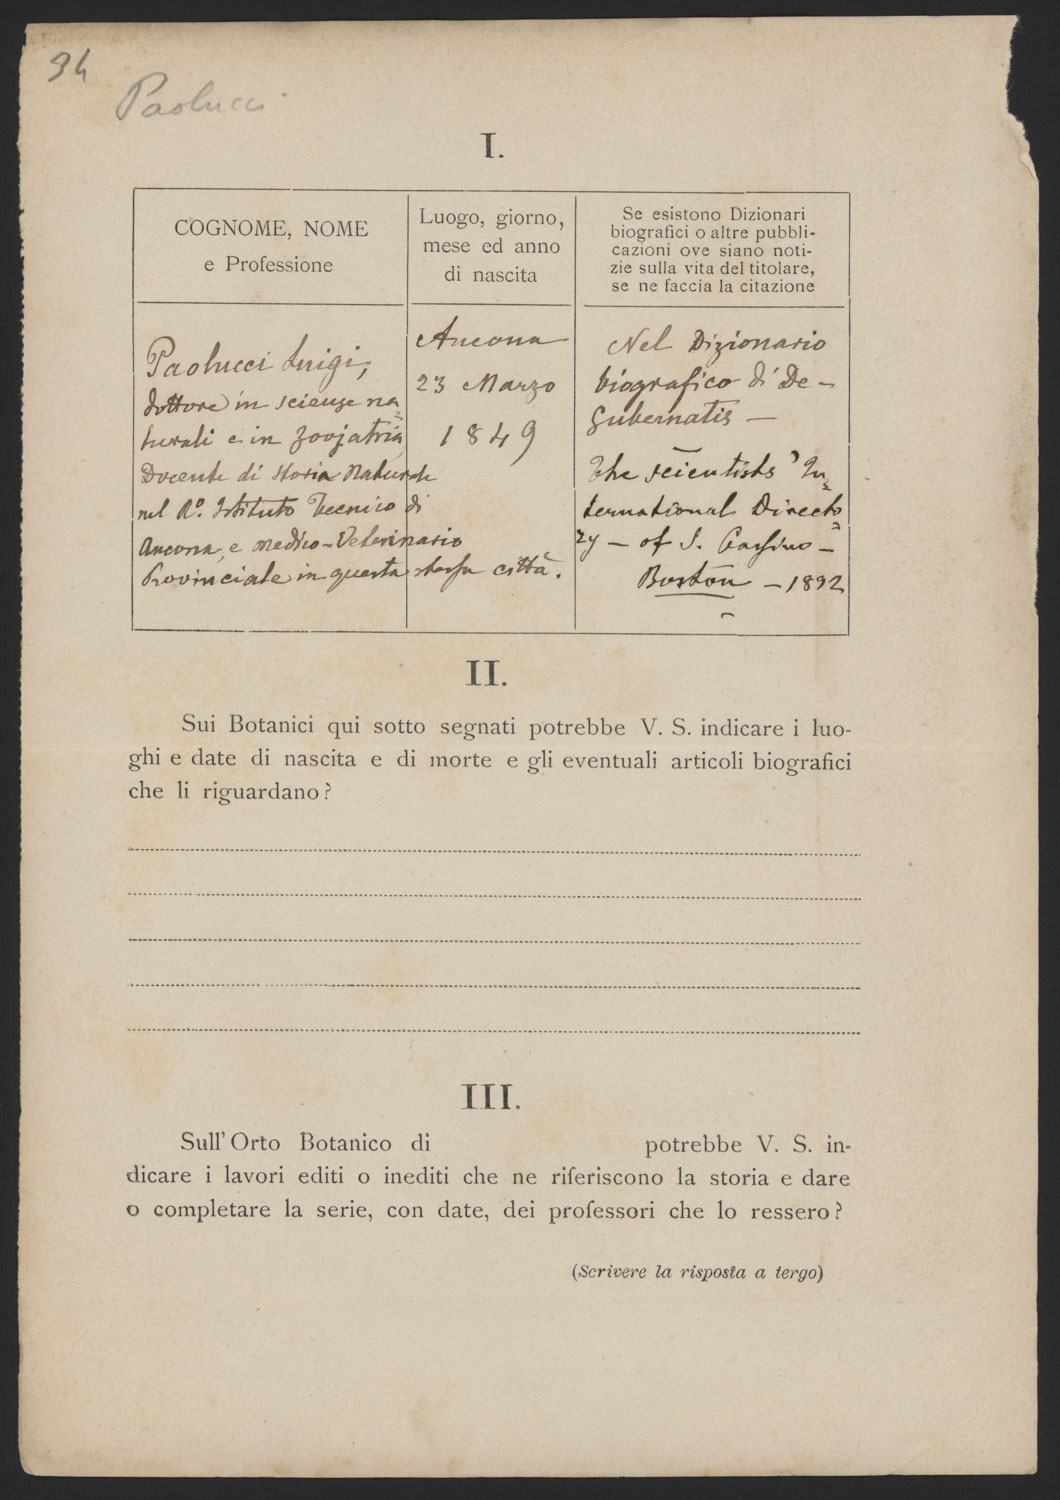 94
Paolucci
I.
COGNOME, NOME
e Professione
Luogo, giorno,
mese ed anno
di nascita
Se esistono Dizionari
biografici o altre pubbli-
cazioni ove siano noti-
zie sulla vita del titolare,
se ne faccia la citazione
Paolucci Luigi,
dottore in scienze na=
turali e in zoojatria
Docente di storia naturale
nel R.º Istituto Tecnico di
Ancona, e Medico-Veterinario
Provinciale in questa stessa città.
Ancona
23 Marzo
1849
Nel Dizionario
biografico di De-
Gubernatis —
The scientists' In=
ternational Directo=
ry — of S. Cassino —
Boston — 1892
II.
Sui Botanici qui sotto segnati potrebbe V. S. indicare i luo-
ghi e date di nascita e di morte e gli eventuali articoli biografici
che li riguardano?
III.
Sull'Orto Botanico di potrebbe V. S. in-
dicare i lavori editi o inediti che ne riferiscono la storia e dare
o completare la serie, con date, dei professori che lo ressero?
(Scrivere la risposta a tergo)